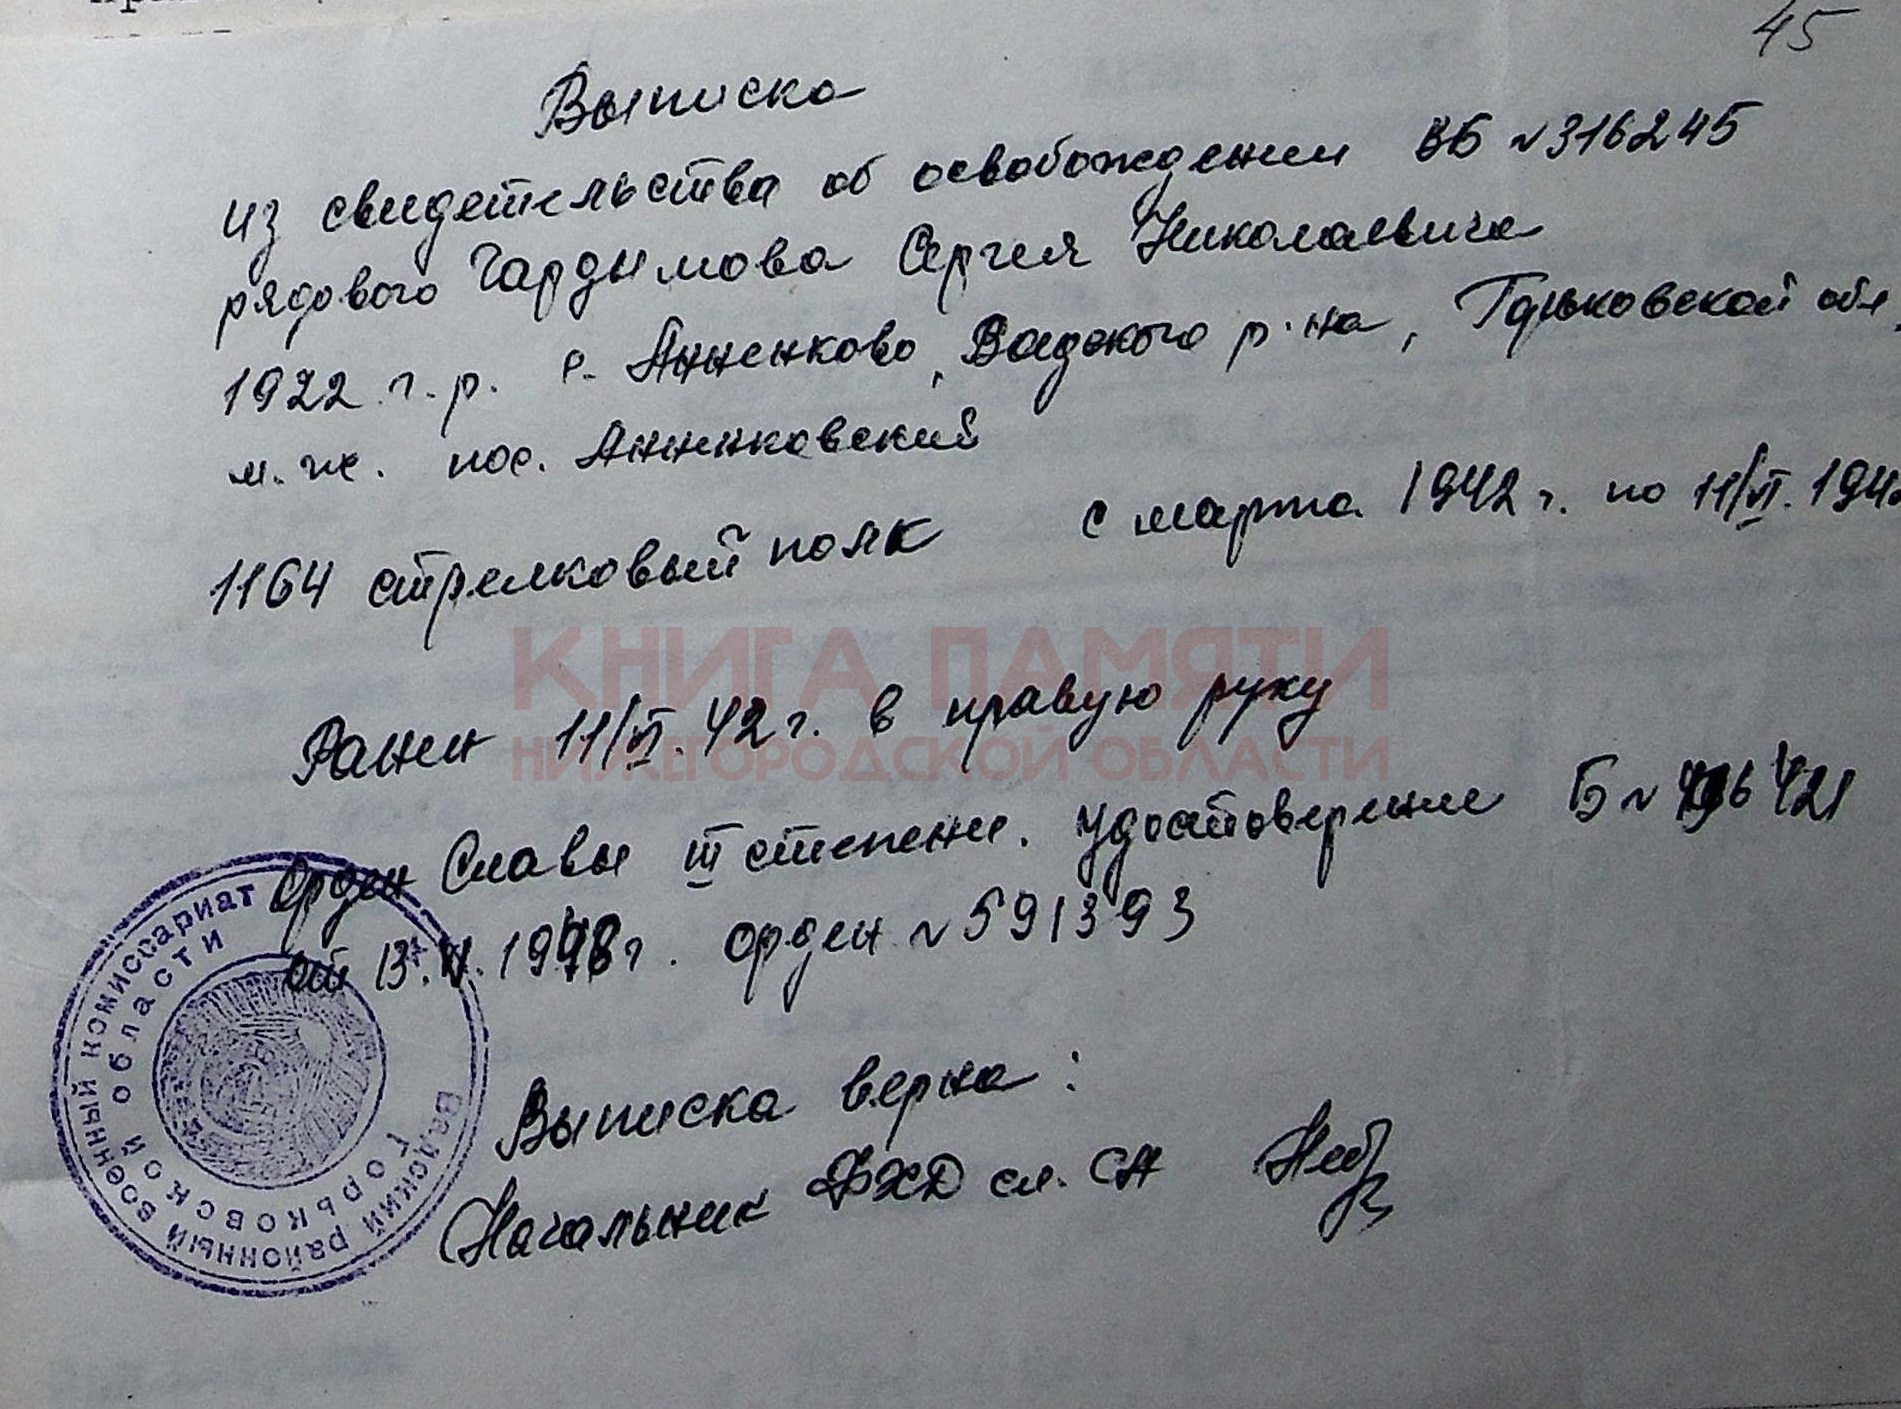 45
Выписка
из свидетельства об освобождении ВБ №316245
рядового Гардымова Сергея Николаевича
1922 г.р. с. Анненково, Вадского р-на, Горьковской обл.
м.ж. пос. Анненковский
1164 стрелковый полк с марта 1942 г. по 11/VI. 194
КНИГА ПАМЯТИ
Ранен 11/VI. 42 г. в правую руку
НИЖЕГОРОДСКОЙ ОБЛАСТИ
Орден Славы III степени. Удостоверение Б № 421
от 13. г. орден №591393
Выписка верна:
Начальник ФХД сл. СА
Вадский районный военный комиссариат
Горьковской области